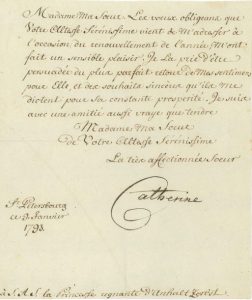 Madame Ma Soeur. Les voeux obligeans que
Votre Altesse Serenissime vient de M'adresser à
l'occasion du renouvellement de l'année M'ont
fait un sensible plaisir. Je La prie d'être
persuadée du plus parfait retour de Mes sentimens
pour Elle et des souhaits sincères qu'ils Me
dictent pour Sa constante prosperité. Je suis
avec une amitié aussi vraye que tendre
Madame Ma Soeur
de Votre Altesse Serenissime
La très affectionnée Soeur
Catherine
St. Petersbourg
ce 9 Janvier
1793.
à S. A. S. la Princesse regnante d'Anhalt Zerbst